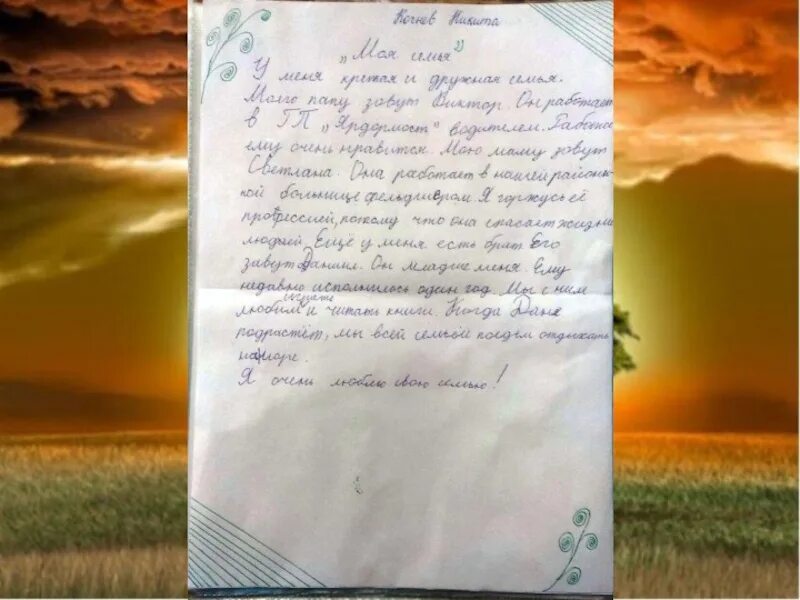 Кочнев Никита
„Моя семья"
У меня крепкая и дружная семья.
Моего папу зовут Виктор. Он работает
в ГП „Ярдормост" водителем. Работа
ему очень нравится. Мою маму зовут
Светлана. Она работает в нашей район-
ной больнице фельдшером. Я горжусь её
профессией, потому что она спасает жизни
людей. Ещё у меня есть брат Его
зовут Даниил. Он младше меня. Ему
недавно исполнилось один год. Мы с ним
любим играть и читать книги. Когда Даня
подрастёт, мы всей семьёй поедем отдыхать
на море.
Я очень люблю свою семью!